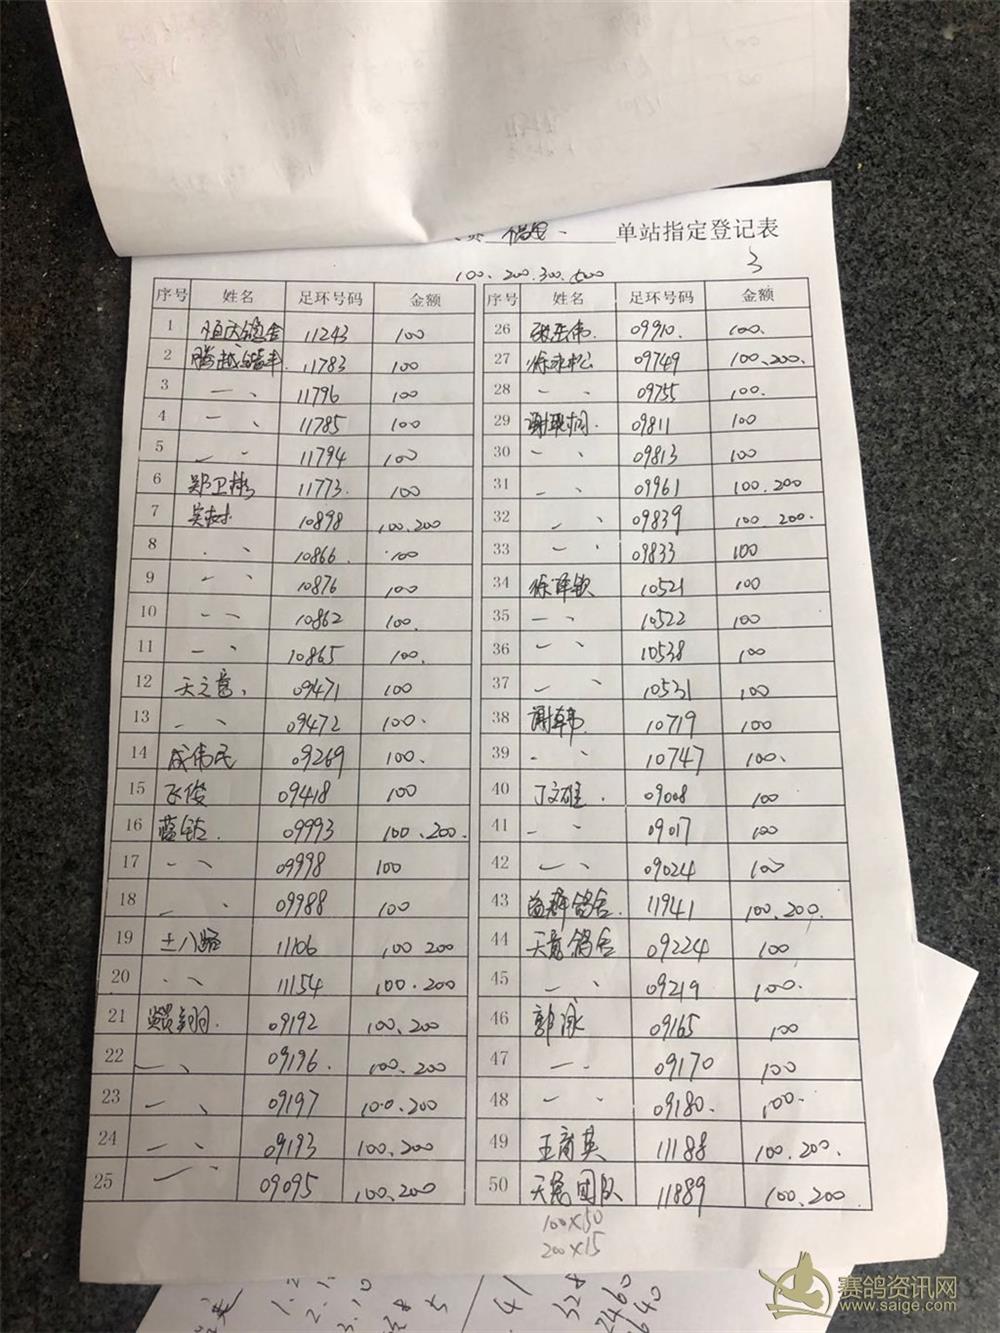 单站指定登记表
3
100、200.300.500
序号 姓名 足环号码 金额
1 恒达鸽舍 11243 100
2 11783 100
3 一 、 11796 100
4 一 、 11785 100
5 一 、 11794 100
6 郑卫彬 11773. 100
7 10898 100.200
8 一 、 10866 100
9 一 、 10876 100
10 一 、 10862 100.
11 一 、 10865 100.
12 天之 09471 100
13 一 、 09472 100.
14 成伟民 09269 100.
15 飞俊 09418 100
16 蓝钻. 09993 100、200.
17 一 、 09998 100
18 一 、 09988 100
19 十八路 11106 100 200
20 、 、 11154 100.200
21 09192 100、200
22 一 、 09196. 100.200
23 一 、 09197 100.200
24 一 、 09193 100、200
25 一 、 09095 100、200
序号 姓名 足环号码 金额
26 张 伟. 09910. 100.
27 徐永松 09749 100、200.
28 一 、 09755 100.
29 谢 09811 100
30 一 、 09813 100
31 一 、 09961 100.200
32 一 、 09839 100 200.
33 一 、 09833 100
34 徐泽钦 10521 100
35 一 、 10522 100
36 一 、 10538 100
37 一 、 10531 100
38 谢韩. 10719 100
39 一 、 10747 100.
40 丁文雄. 09008 100
41 一 、 09017 100
42 一 、 09024 100
43 鸽舍. 11941 100.200.
44 天意鸽舍 09224 100
45 一 、 09219 100.
46 郭泳 09165 100
47 一 、 09170 100
48 一 、 09180. 100.
49 王商英 11188 100.200.
50 天意团队 11889 100、200
100×50
200×15
赛鸽资讯网
www.saige.com